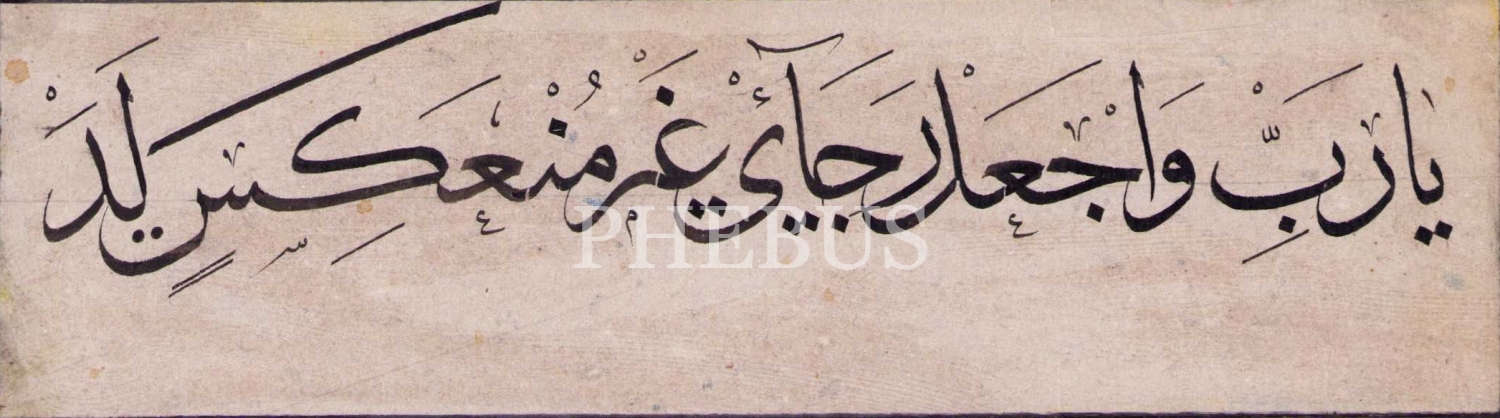 يَا رَبِّ وَاجْعَلْ رَجَآئِي غَيْرَ مُنْعَكِسٍ لَدَيْ
PHEBUS